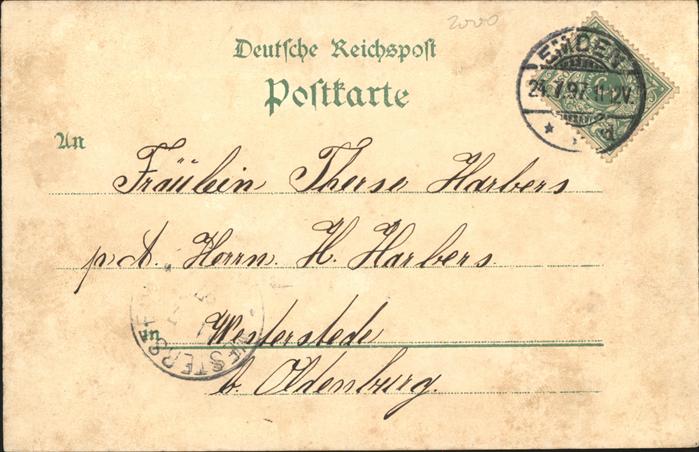 2000
Deutsche Reichspost
Postkarte
EMDEN
24.7.97.11-12V.
An
Fräulein Therse Harbers
p. A. Herrn. H. Harbers.
in Westerstede
b. Oldenburg.
WESTERSTEDE